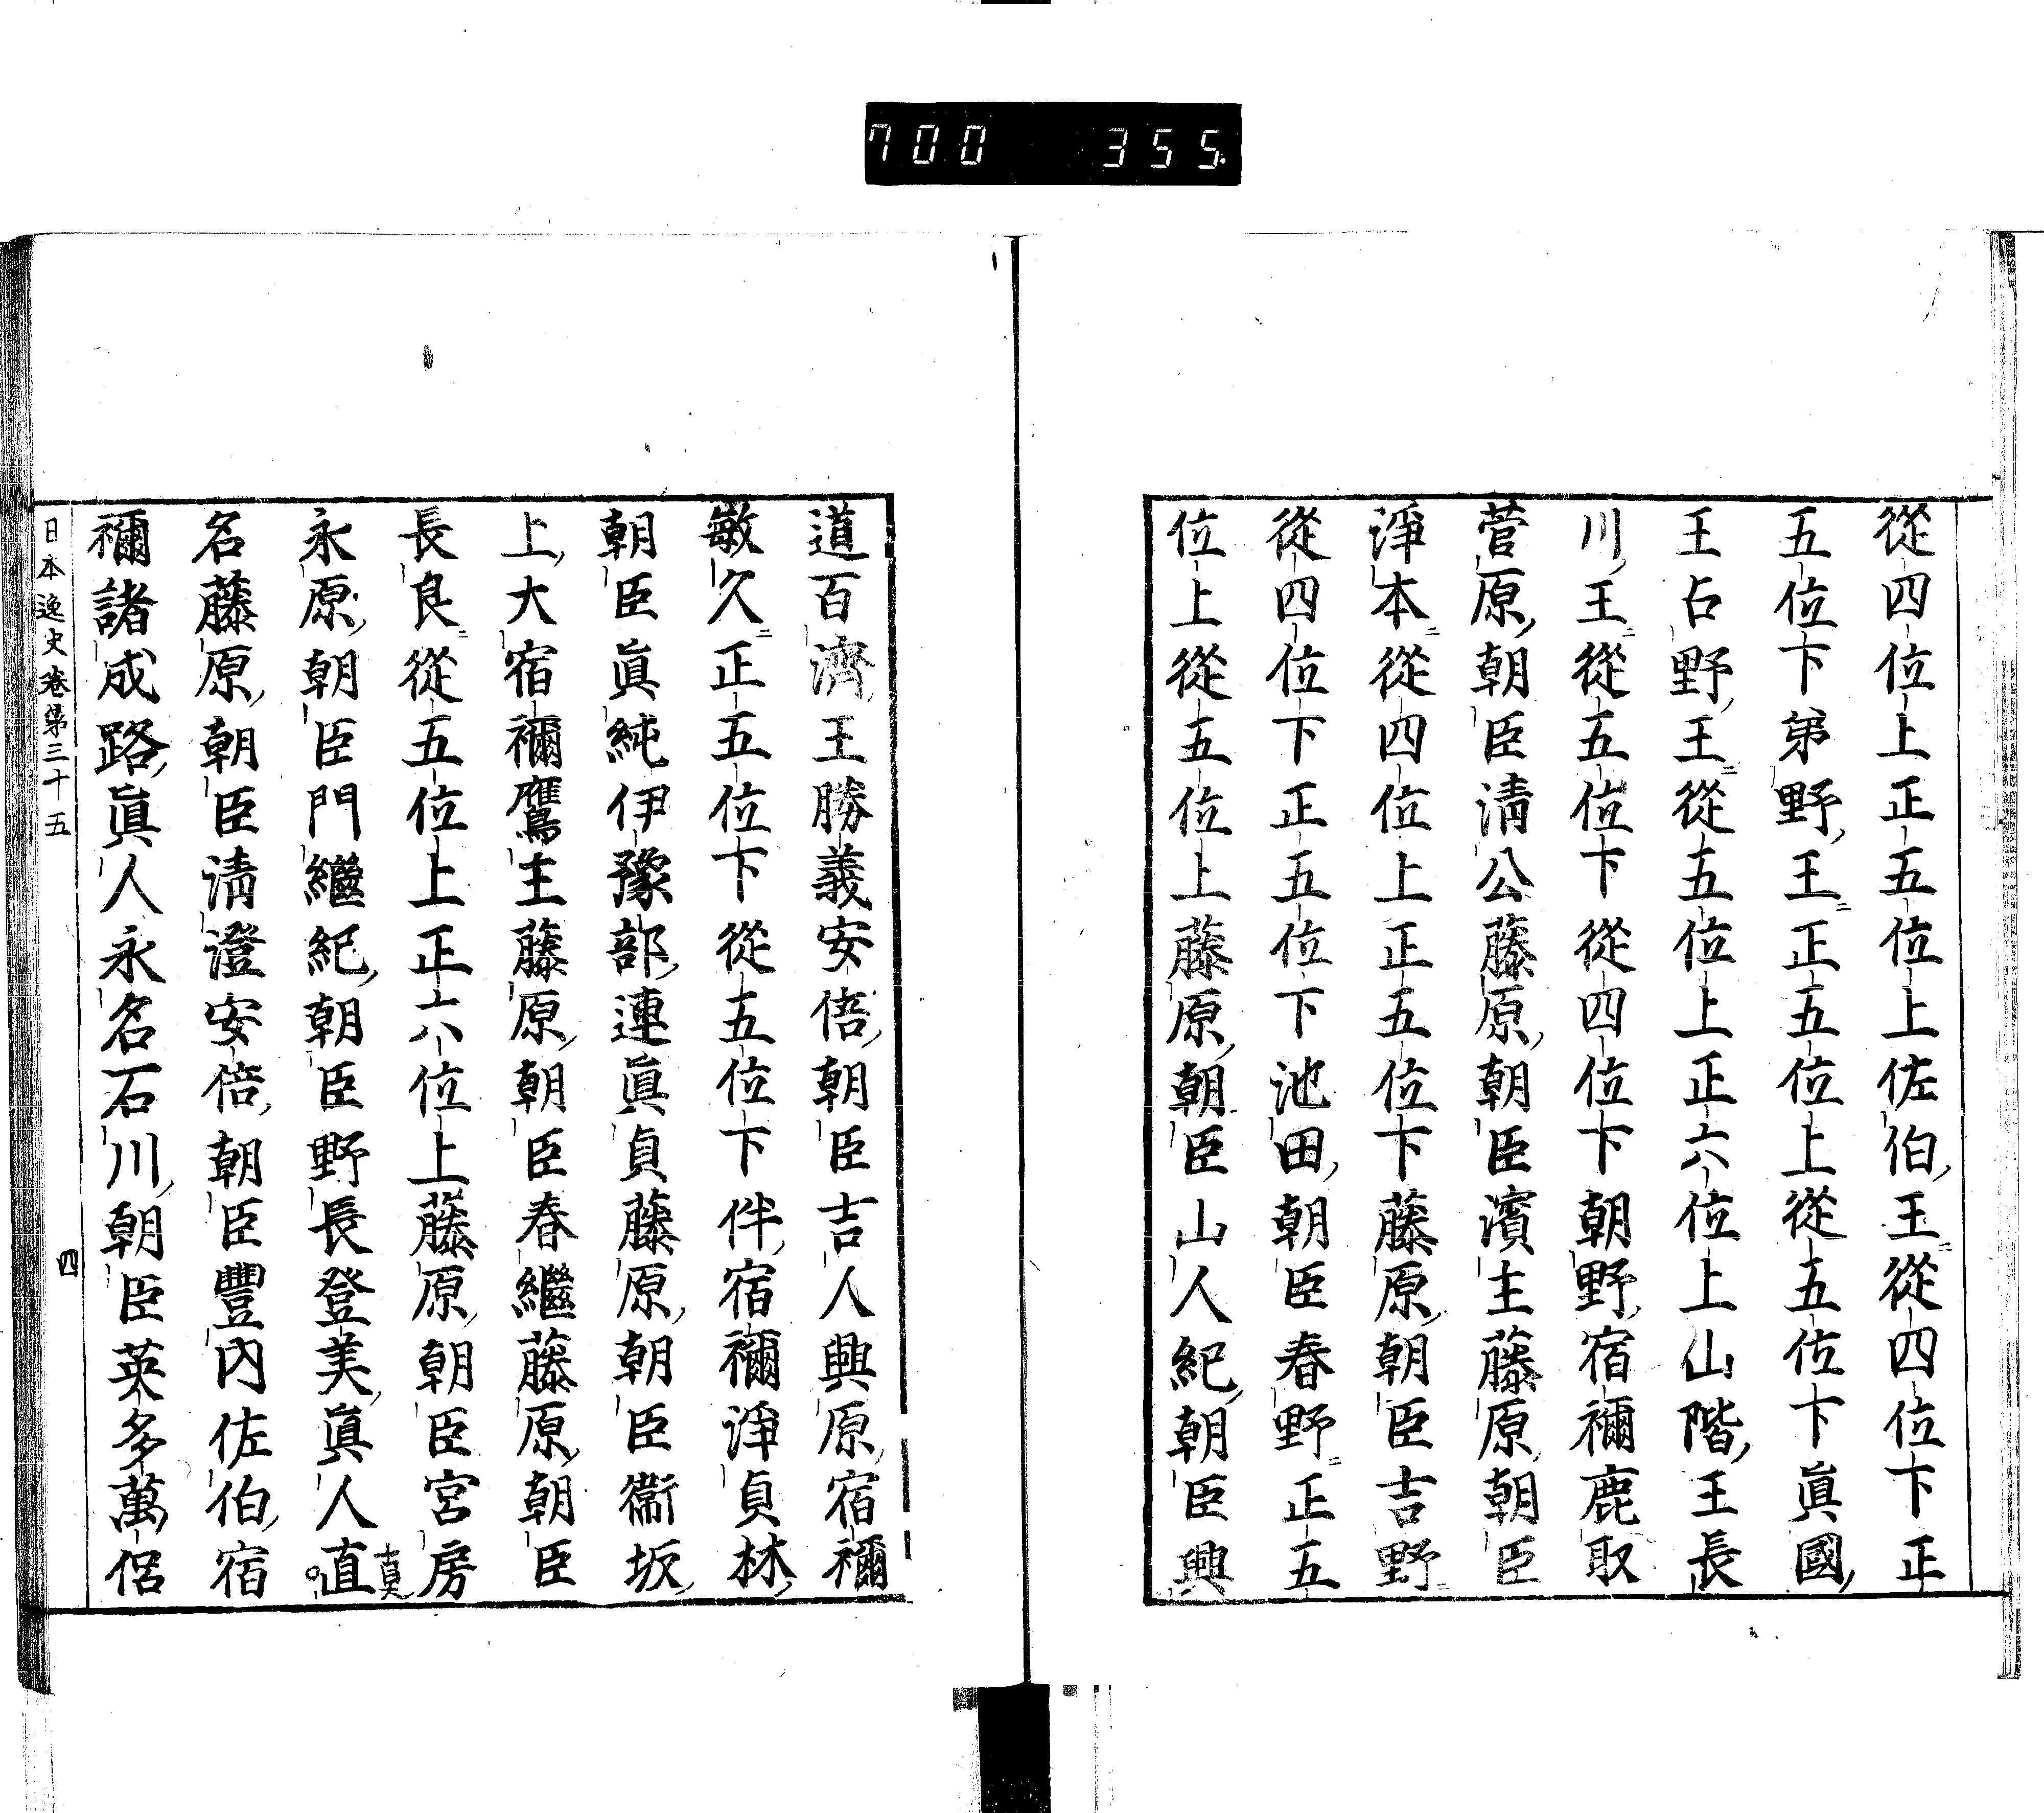 700 355
從四位上正五位上佐伯王從四位下正
五位下弟野王正五位上從五位下眞國
王占野王從五位上正六位上山階王長
川王從五位下從四位下朝野宿禰鹿取
菅原朝臣淸公藤原朝臣濱主藤原朝臣
淨本從四位上正五位下藤原朝臣吉野
從四位下正五位下池田朝臣春野正五
位上從五位上藤原朝臣山人紀朝臣興
道百濟王勝義安倍朝臣吉人興原宿禰
敏久正五位下從五位下伴宿禰淨貞林
朝臣眞純伊豫部連眞貞藤原朝臣衞坂
上大宿禰鷹主藤原朝臣春繼藤原朝臣
長良從五位上正六位上藤原朝臣宮房
永原朝臣門繼紀朝臣野長登美眞人直
名藤原朝臣淸澄安倍朝臣豐內佐伯宿
禰諸成路眞人永名石川朝臣英多萬侶
日本逸史卷第三十五 四